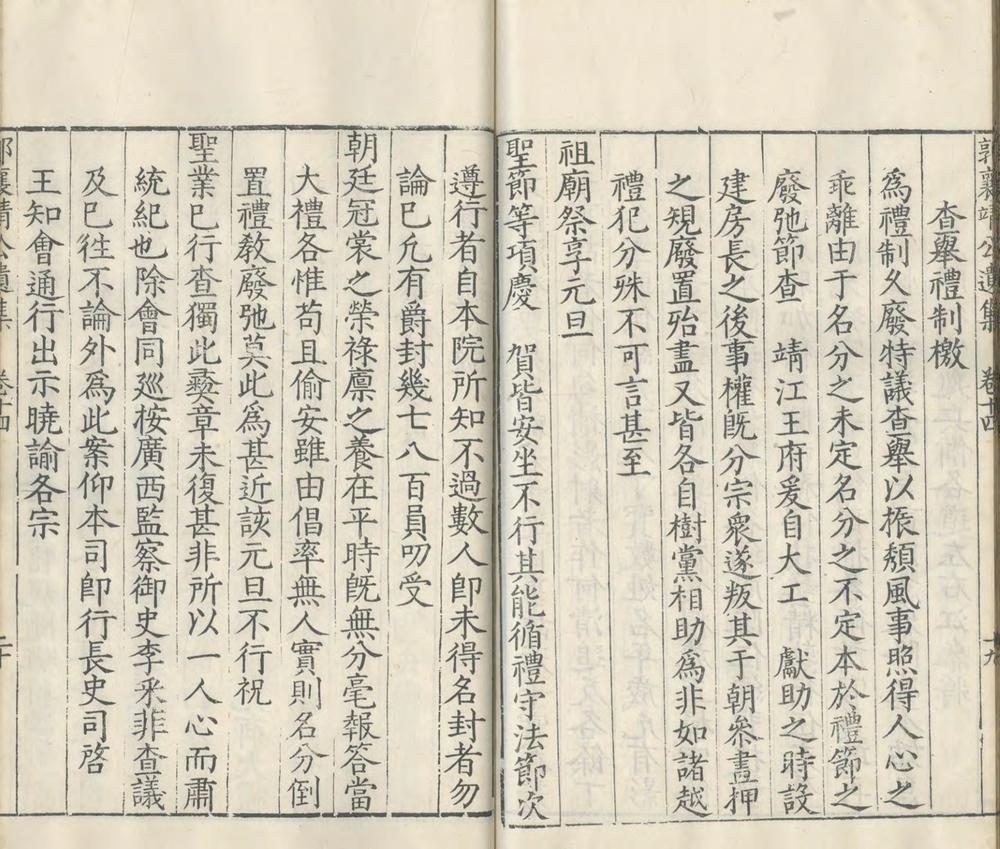 郭襄靖公遺集 卷十四 十九
查舉禮制檄
為禮制久廢特議查舉以振頹風事照得人心之
乖離由于名分之未定名分之不定本於禮節之
廢弛節查 靖江王府爰自大工 獻助之時設
建房長之後事權既分宗衆遂叛其于朝叅畫押
之規廢置殆盡又皆各自樹黨相助為非如諸越
禮犯分殊不可言甚至
祖廟祭享元旦
聖節等項慶 賀皆安坐不行其能循禮守法節次
遵行者自本院所知不過數人卽未得名封者勿
論已凢有爵封幾七八百員叨受
朝廷冠裳之榮祿廪之養在平時既無分毫報答當
大禮各惟苟且偷安雖由倡率無人實則名分倒
置禮教廢弛莫此為甚近該元旦不行祝
聖業已行查獨此彞章未復甚非所以一人心而肅
統紀也除會同廵按廣西監察御史李釆菲查議
及已徃不論外為此案仰本司卽行長史司啓
王知會通行出示曉諭各宗
郭襄靖公遺集 卷十四 二十